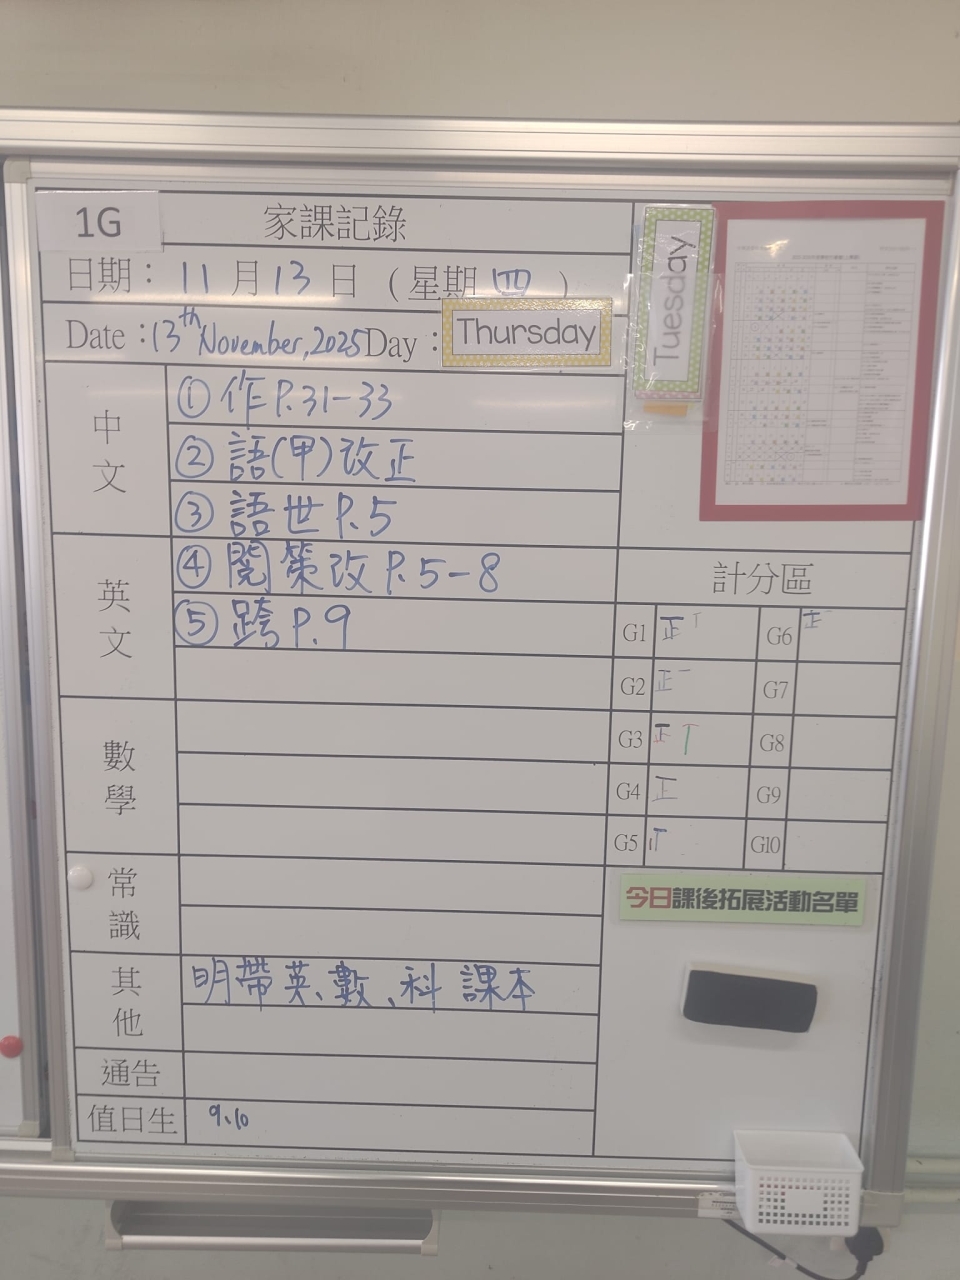 1G
家課記錄
日期：11月13日（星期四）
Date：13th November, 2025 Day：Thursday
Tuesday
中文
① 作P.31-33
② 語(甲)改正
③ 語世P.5
英文
④ 閱策改P.5-8
⑤ 跨P.9
數學
常識
其他
明帶英、數、科 課本
通告
值日生
9、10
計分區
G1 正丅
G6 正一
G2 正一
G7
G3 正丅
G8
G4 正
G9
G5
G10
今日課後拓展活動名單